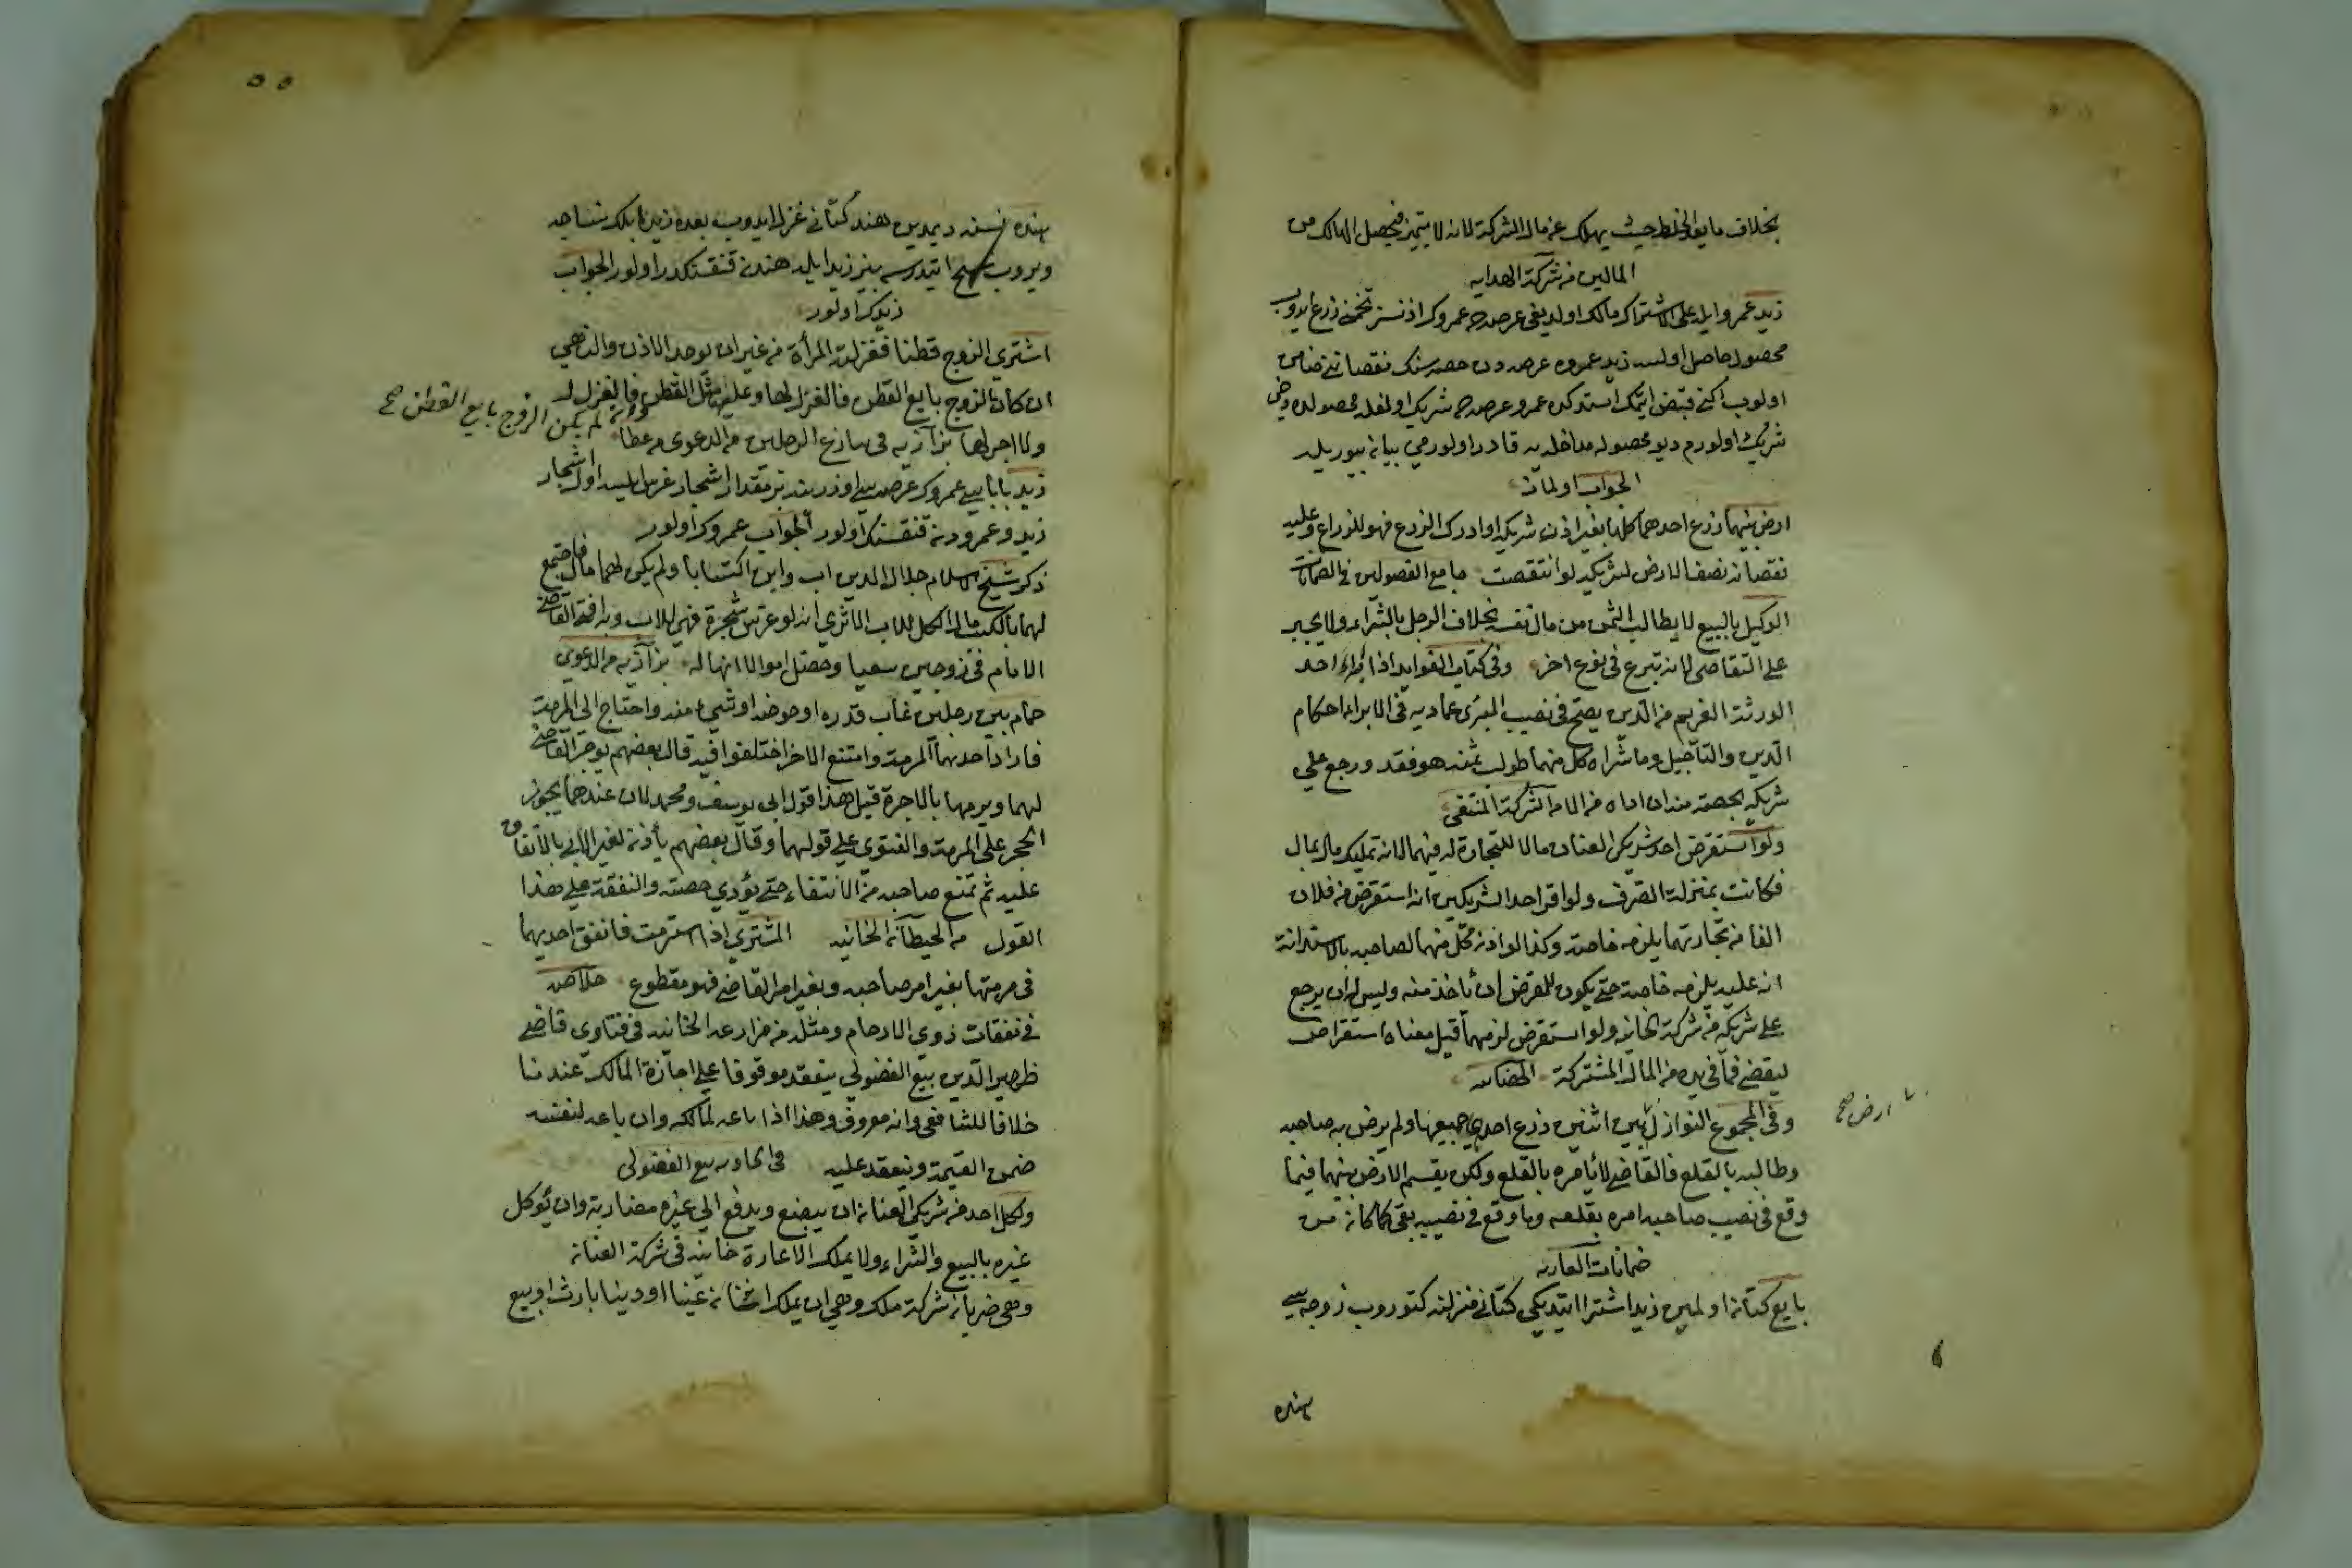 بخلاف ما بعد الخلط حيث يهلك عن مال الشركة لانه لا يتميز فيجعل الهالك من
المالين من شركة الهداية
زيد عمرو ايله على الاشتراك مالك اولديغى عرصه يه عمروك اذنسز تخمنى زرع ايدوب
محصول حاصل اولسه زيد عمروه عرصه دن حصه سنك نقصاننى ضامن
اولوب آكنى قبض ايتمك استدكده عمرو عرصه يه شريك اولمغله محصولده دخى
شريك اولورم ديو محصوله مداخله يه قادر اولورمى بيان بيوريله
الجواب اولماز
ارض بينهما زرع احدهما كلها بغير اذن شريكه او ادرك الزرع فهو للزراع وعليه
نقصان نصف الارض لشريكه لو انتقصت جامع الفصولين فى الضمانات
الوكيل بالبيع لا يطالب الثمن من مال نفسه بخلاف الوجل بالشراء ولا يجبر
على التقاضى لانه تبرع فى نوع اخر وفى كتاب الفوايد اذا ابراء احد
الورثة الغريم من الدين يصح فى نصيب المبرئ عماديه فى الابراء احكام
الدين والتأجيل وما شراه كل منهما طولب بثمنه هو فقد ورجع على
شريكه بحصته منه ان اداه من الشركة المنتقى
ولو استقرض احد شريكى العنان مالا للتجارة لزمهما لانه تمليك مال بمال
فكانت بمنزلة الصرف ولو اقر احد الشريكين انه استقرض من فلان
الفا من تجارتهما يلزمه خاصة وكذا لو اذن كل منهما لصاحبه بالاستدانة
انه عليه يلزمه خاصة حتى يكون للمقرض ان ياخذ منه وليس له ان يرجع
على شريكه من شركة الخانيه ولو استقرض لزمهما قيل معناه استقراض
ليقضى فيما فى يده من المال المشترك
وفى المجموع النوازل بين اثنين زرع احدهما جميعها ولم يرض به صاحبه
ارض صح
وطالبه بالقلع فالقاضى لا يأمره بالقلع ولكن يقسم الارض بينهما فيما
وقع فى نصيب صاحبه امره بقلعه وما وقع فى نصيبه بقى كما كان من
ضمانات العاريه
بايع كتان اولمين زيد اشترا ايتديكى كتانى منزلنه كتوروب زوجه سى
هنده
هنده نسنه ديمدين هند كتانى غزل ايدوب بعده زيد
ويروب ايتدرسه بز زيد ايله هندن قنقسنكدر اولور الجواب
زيدك اولور
اشترى الزوج قطنا فغزلته المرأة من غير ان يوجد الاذن والنهى
ان كان الزوج بايع القطن فالغزل لها وعليها مثل القطن فالغزل له
وان لم يكن الزوج بايع القطن صح
ولا اجر لها بزازيه فى الرجلين من الدعوى
زيد باباسى عمروك عرصه سى اوزرينه بر مقدار اشجار غرس ايلسه اول اشجار
زيد وعمرودن قنقسنك اولور الجواب عمروك اولور
ذكر شيخ الاسلام جلال الدين اب وابن اكتسابا ولم يكن لهما مال فاجتمع
لهما بالكسب مال الكل للاب الا ترى انه لو غرس شجرة فهى للاب وبه افتى القاضى
الامام فى زوجين سعيا وحصل اموالا انها له بزازيه من الدعوى
حمام بين رجلين غاب قدره او حوضه او شيء منه واحتاج الى المرمة
فاراد احدهما المرمة وامتنع الاخر اختلفوا فيه قال بعضهم يوجر القاضى
لهما ويرمها بالاجرة قيل هذا قول ابى يوسف ومحمد لان عندهما يجوز
الحجر على المرمة والفتوى على قولهما وقال بعضهم يأذن لغير الابى بالانفاق
عليه ثم يمنع صاحبه من الانتفاع حتى يؤدى حصته والنفقة على هذا
القول من الحيطان الخانيه المشترى اذا استرمت فانفق احديهما
فى مرمتها بغير امر صاحبه وبغير امر القاضى فهو مقطوع خلاصه
فى نفقات ذوى الارحام ومثله من مزارعة الخانيه فى فتاوى قاضى
ظهير الدين بيع الفضولى ينعقد موقوفا على اجازة المالك عندنا
خلافا للشافعى وانه معروف وهذا اذا باعه لمالكه وان باعه لنفسه
ضمن القيمة وينعقد عليه من بيع الفضولى
ولكل احد من شريكى العنان ان يبضع ويدفع الى غيره مضاربة وان يؤكل
غيره بالبيع والشراء ولا يملك الاعارة خانيه فى شركة العنان
وهى ضربان شركة ملك وهى ان يملك اثنان عينا او دينا بارث او بيع